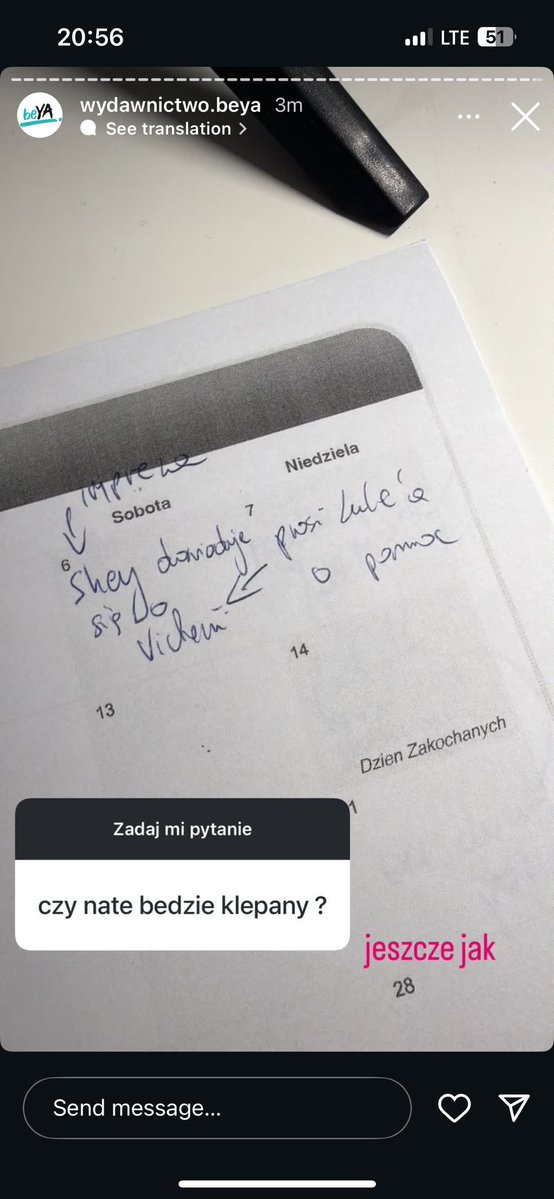 20:56
LTE 51
beYA.
wydawnictwo.beya 3m
See translation >
impreza
Sobota
Niedziela
6
7
Shey dowiaduje
się Do
prosi Luke'a
o pomoc
13
14
Dzien Zakochanych
1
Zadaj mi pytanie
czy nate bedzie klepany ?
jeszcze jak
28
Send message...